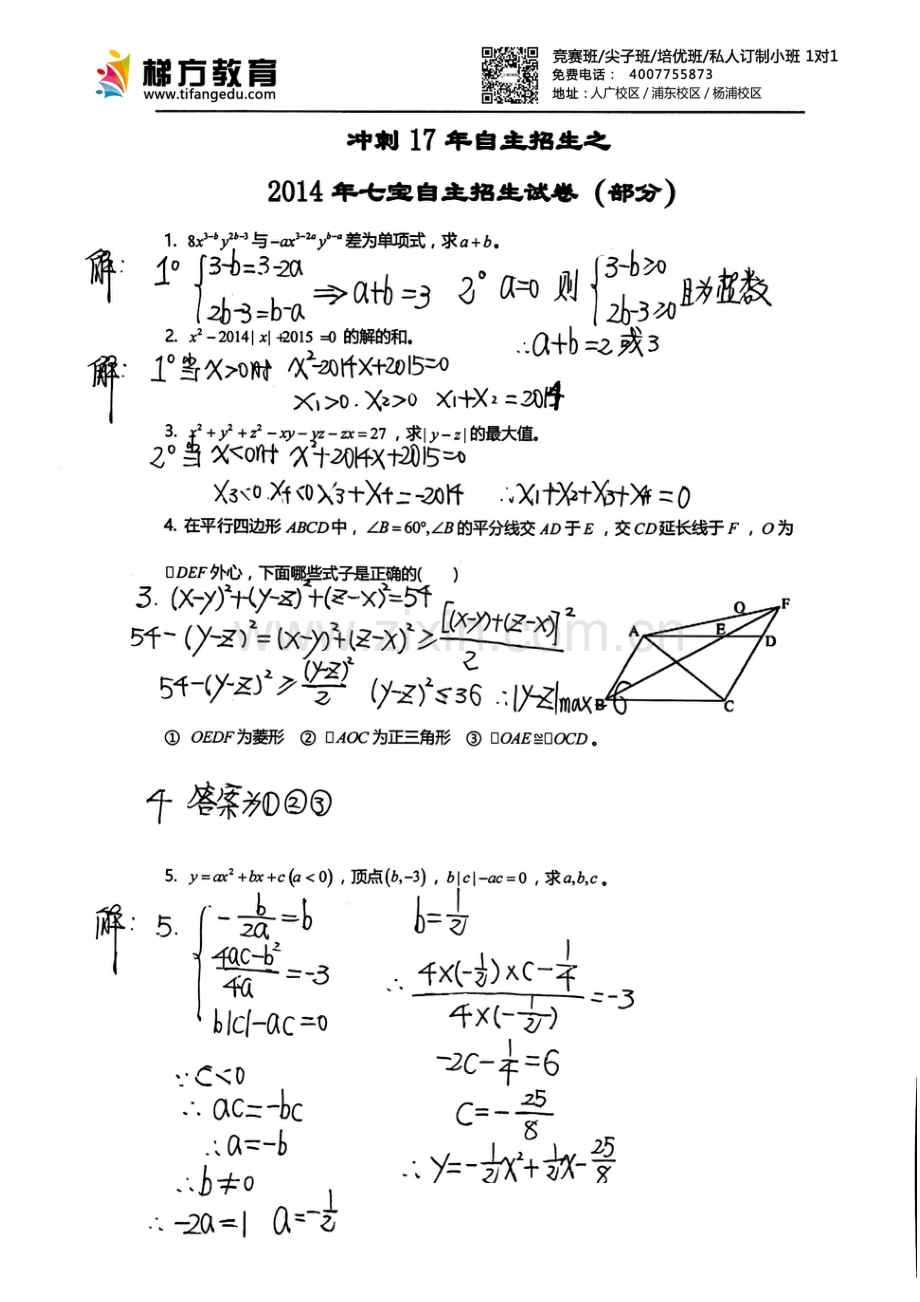 梯方教育
www.tifangedu.com
竞赛班/尖子班/培优班/私人订制小班 1对1
免费电话： 4007755873
地址：人广校区 / 浦东校区 / 杨浦校区
冲刺 17 年自主招生之
2014 年七宝自主招生试卷（部分）
1. 8x^{3-b}y^{2b-3}与-ax^{3-2a}y^{b-a}差为单项式，求a+b。
解： 1° {3-b=3-2a 2b-3=b-a ⇒ a+b=3 2° a=0 则 {3-b≥0 2b-3≥0 且为整数
∴a+b=2或3
2. x²-2014|x|+2015=0 的解的和。
解： 1°当x>0时 x²-2014x+2015=0
x₁>0. x₂>0 x₁+x₂=2014
3. x²+y²+z²-xy-yz-zx=27，求|y-z|的最大值。
2°当x<0时 x²+2014x+2015=0
x₃<0 x₄<0 x₃+x₄=-2014 ∴x₁+x₂+x₃+x₄=0
4. 在平行四边形 ABCD 中，∠B=60°,∠B 的平分线交 AD 于 E ，交 CD 延长线于 F ，O 为
▯DEF 外心，下面哪些式子是正确的( )
3. (x-y)²+(y-z)²+(z-x)²=54
54-(y-z)²=(x-y)²+(z-x)²≥[(x-y)+(z-x)]²/2
54-(y-z)²≥(y-z)²/2 (y-z)²≤36 ∴|y-z|max=6
A O F E D B C
www.zixin.com.cn
① OEDF 为菱形 ② ▯AOC 为正三角形 ③ ▯OAE≅▯OCD。
4 答案为①②③
5. y=ax²+bx+c(a<0)，顶点(b,-3)，b|c|-ac=0，求a,b,c。
解： 5. {-b/2a=b
(4ac-b²)/4a=-3
b|c|-ac=0
∵c<0
∴ac=-bc
∴a=-b
∴b≠0
∴-2a=1 a=-1/2
b=1/2
∴ (4×(-1/2)×c-1/4)/(4×(-1/2))=-3
-2c-1/4=6
c=-25/8
∴y=-1/2x²+1/2x-25/8